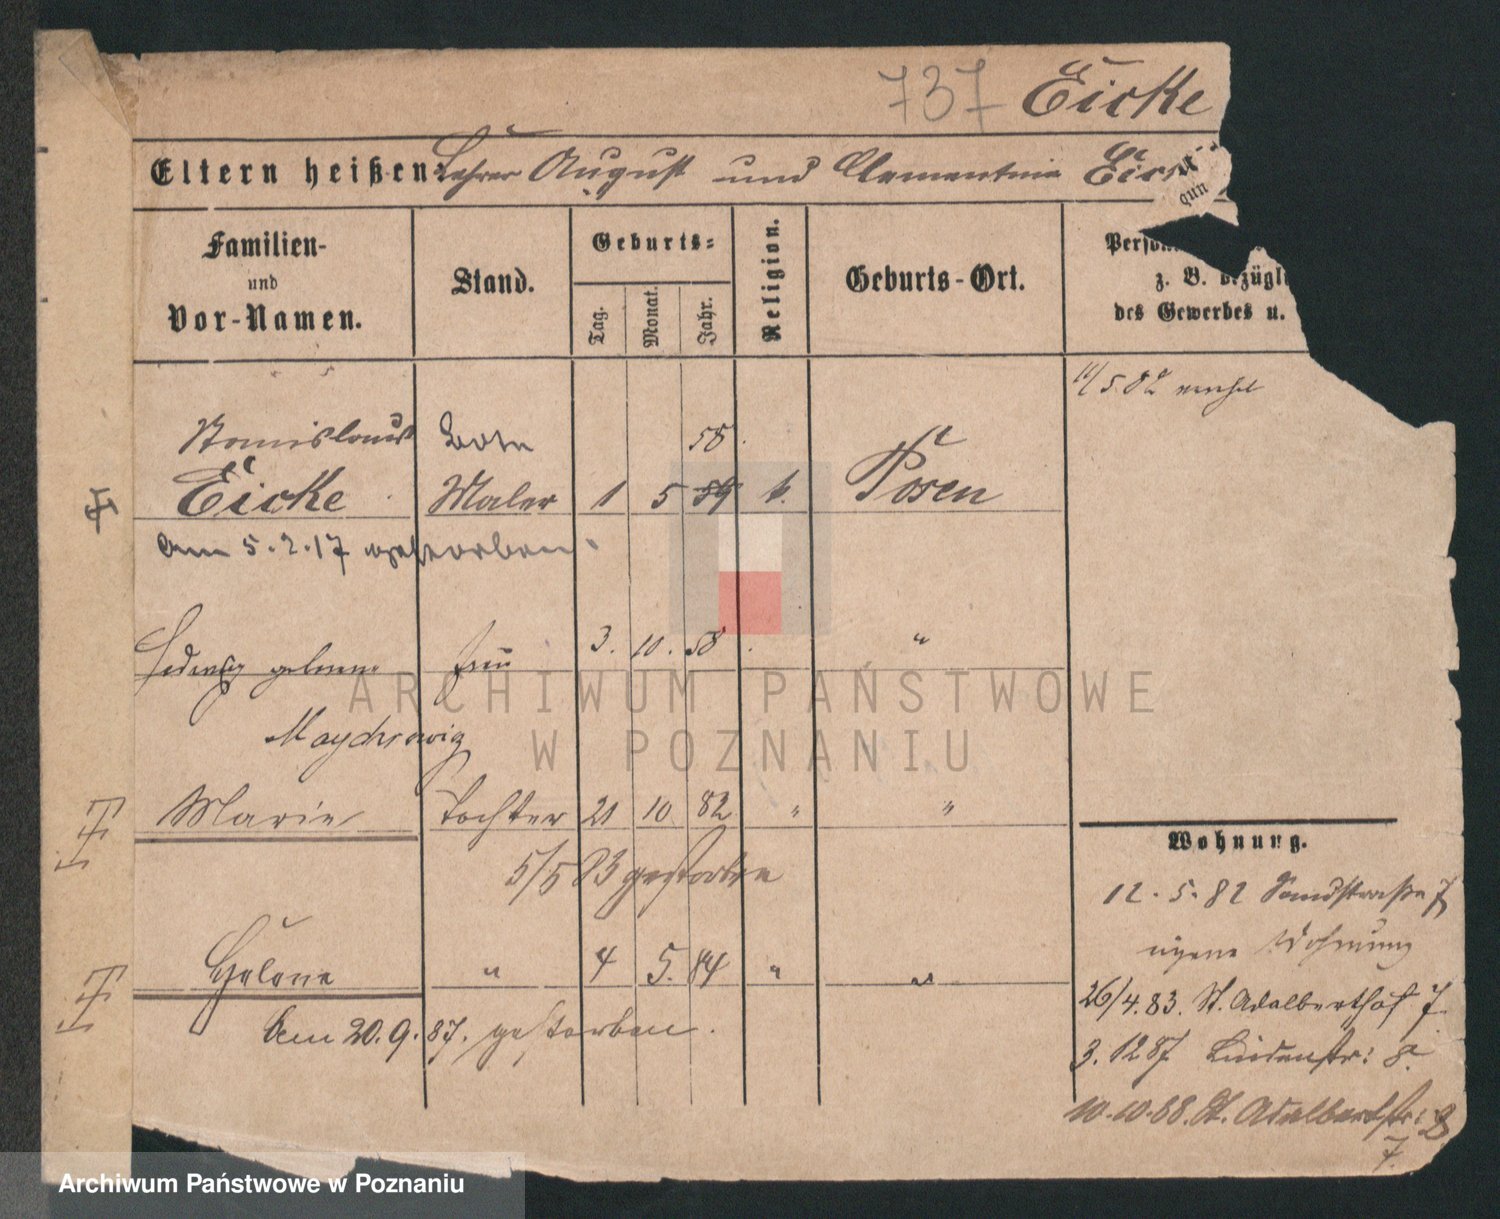 737 Eicke
Eltern heißen Lehrer August und Clementine
Familien-
und
Vor-Namen.
Stand.
Geburts-
Tag.
Monat.
Jahr.
Religion.
Geburts-Ort.
z. B.
des Gewerbes u.
5. 82
Stanislaus Bote 58.
Eicke Maler 1 5 59 k. Posen
am 5.2.17 gestorben.
Hedwig geborene Frau 3. 10. 58. "
Marie Tochter 21 10 82 " "
5/5 83 gestorben
" 4 5. 84 " "
Am 20.9.87. gestorben.
Wohnung.
12.5.82 Sandstraße 7
eigene Wohnung
26/4.83. St. Adalberthof 7.
3.12 87 Lindenstr: 8.
10.10.88. St. Adalbertstr: 8
7.
ARCHIWUM PAŃSTWOWE
W POZNANIU
Archiwum Państwowe w Poznaniu